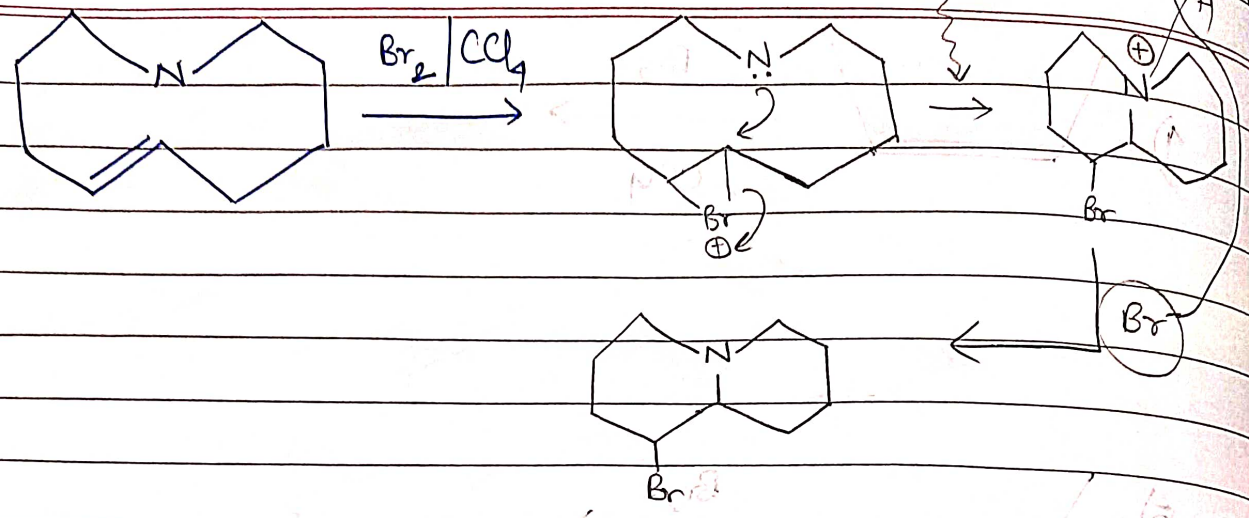 N
Br2 | CCl4
N
Br
⊕
⊕
N
H
Br
Br
N
Br